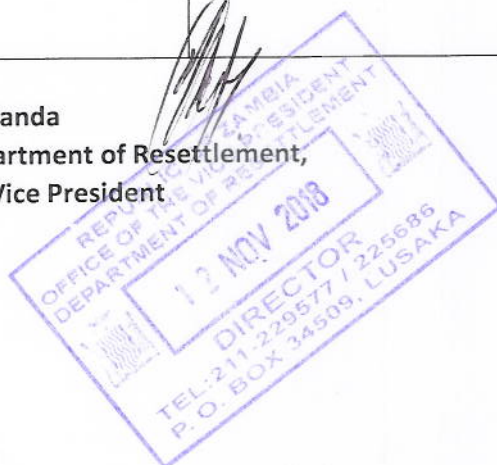 anda
artment of Resettlement,
Vice President
REPUBLIC OF ZAMBIA
OFFICE OF THE VICE PRESIDENT
DEPARTMENT OF RESETTLEMENT
12 NOV 2018
DIRECTOR
TEL:211-229577 / 225686
P. O. BOX 34509, LUSAKA